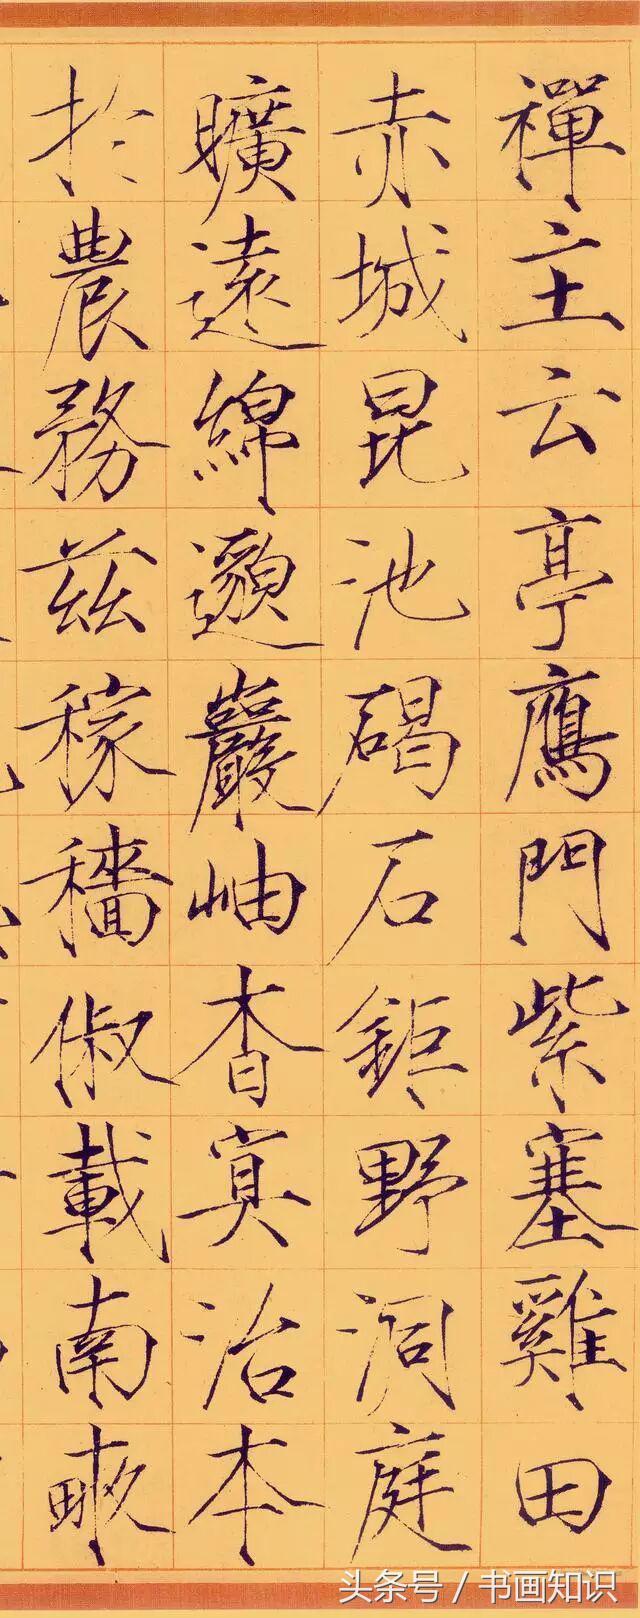 禪主云亭鴈門紫塞雞田
赤城昆池碣石鉅野洞庭
曠遠綿邈巖岫杳冥治本
於農務茲稼穡俶載南畝
头条号 / 书画知识